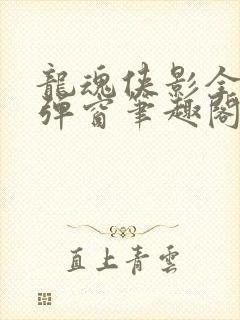 龍魂俠影全
彈窗筆趣閣
直上青雲